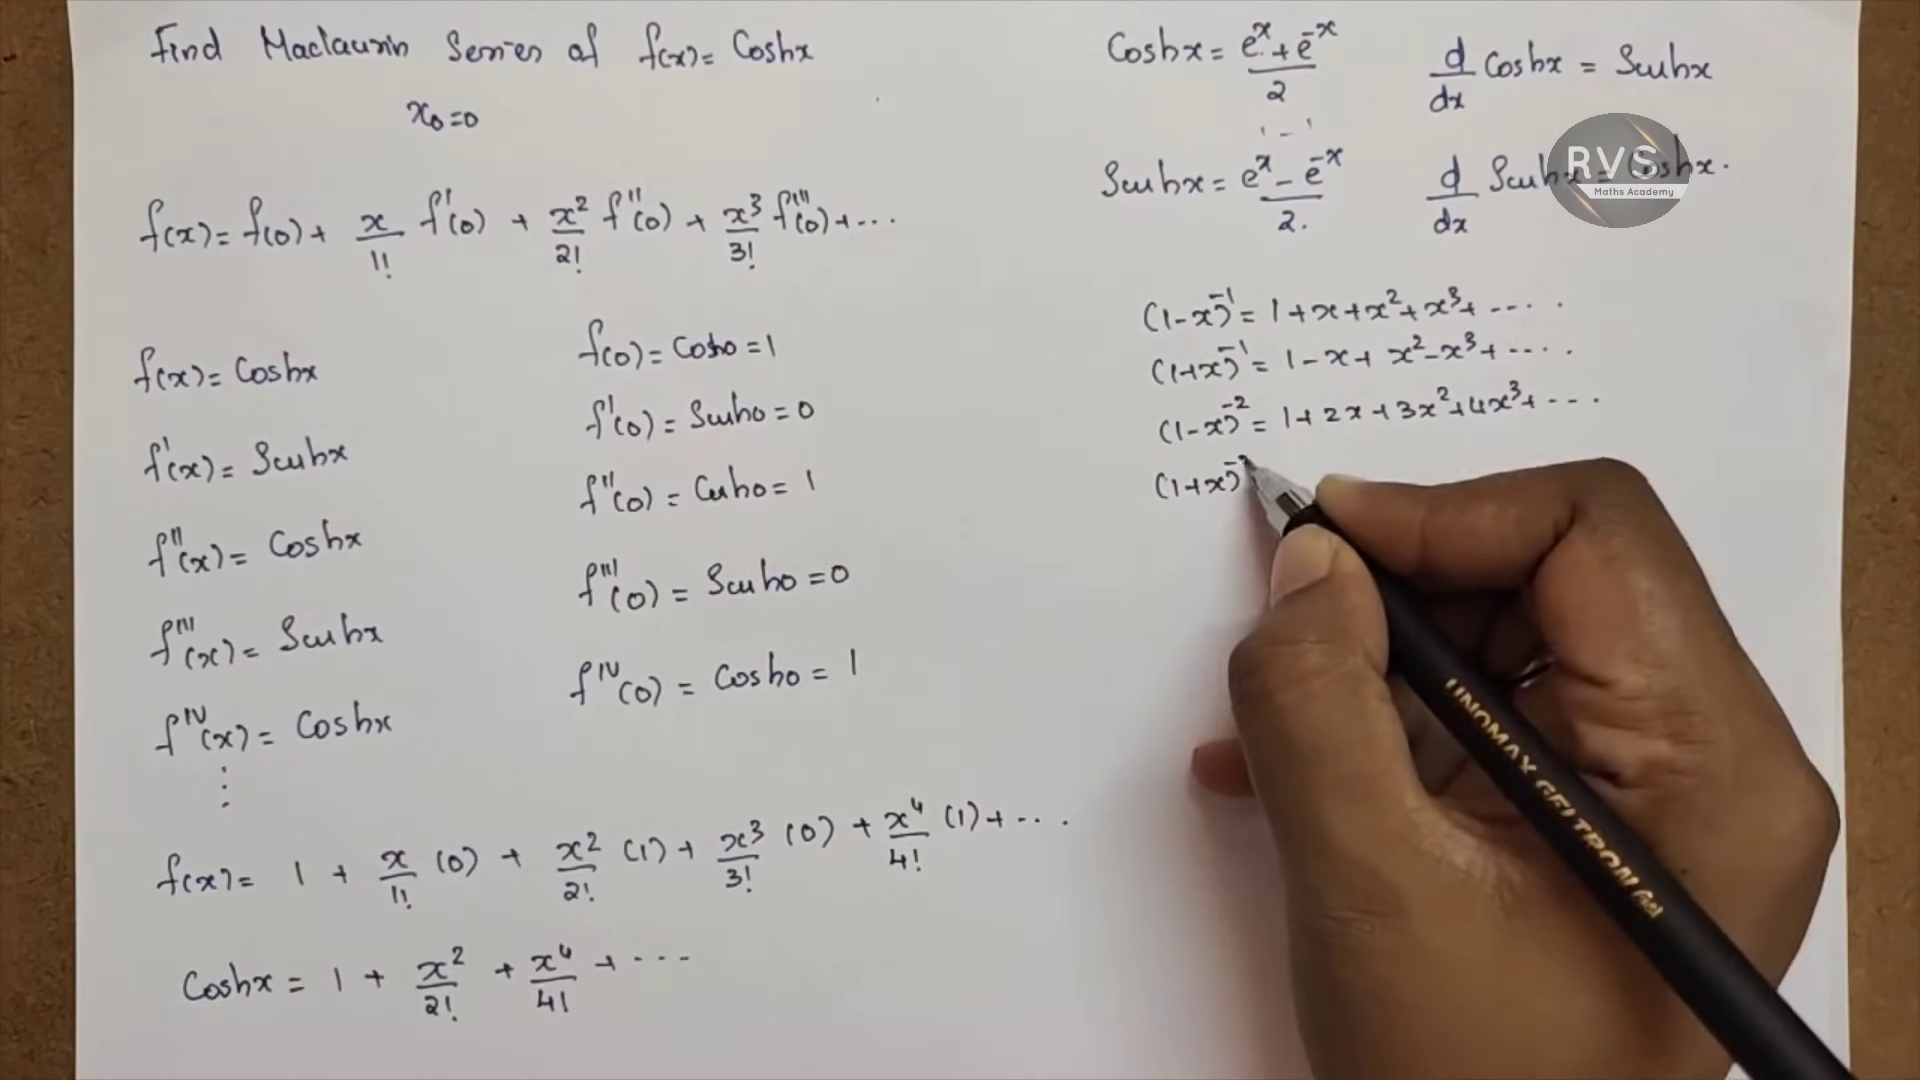 Find Maclaurin Series of f(x) = Coshx
x₀=0
f(x) = f(0) + x/1! f'(0) + x²/2! f''(0) + x³/3! f'''(0) + ...
f(x) = Coshx
f'(x) = Sinhx
f''(x) = Coshx
f'''(x) = Sinhx
f^IV(x) = Coshx
⋮
f(0) = Cosh0 = 1
f'(0) = Sinh0 = 0
f''(0) = Cosh0 = 1
f'''(0) = Sinh0 = 0
f^IV(0) = Cosh0 = 1
f(x) = 1 + x/1! (0) + x²/2! (1) + x³/3! (0) + x⁴/4! (1) + ...
Coshx = 1 + x²/2! + x⁴/4! + ...
Coshx = (e^x + e^-x)/2
d/dx Coshx = Sinhx
Sinhx = (e^x - e^-x)/2.
d/dx Sinhx = Coshx.
RVS
Maths Academy
(1-x)^-1 = 1+x+x²+x³+ ....
(1+x)^-1 = 1-x+x²-x³+ ....
(1-x)^-2 = 1+2x+3x²+4x³+ ...
(1+x)^-
UNOMAX GELTRON Gel